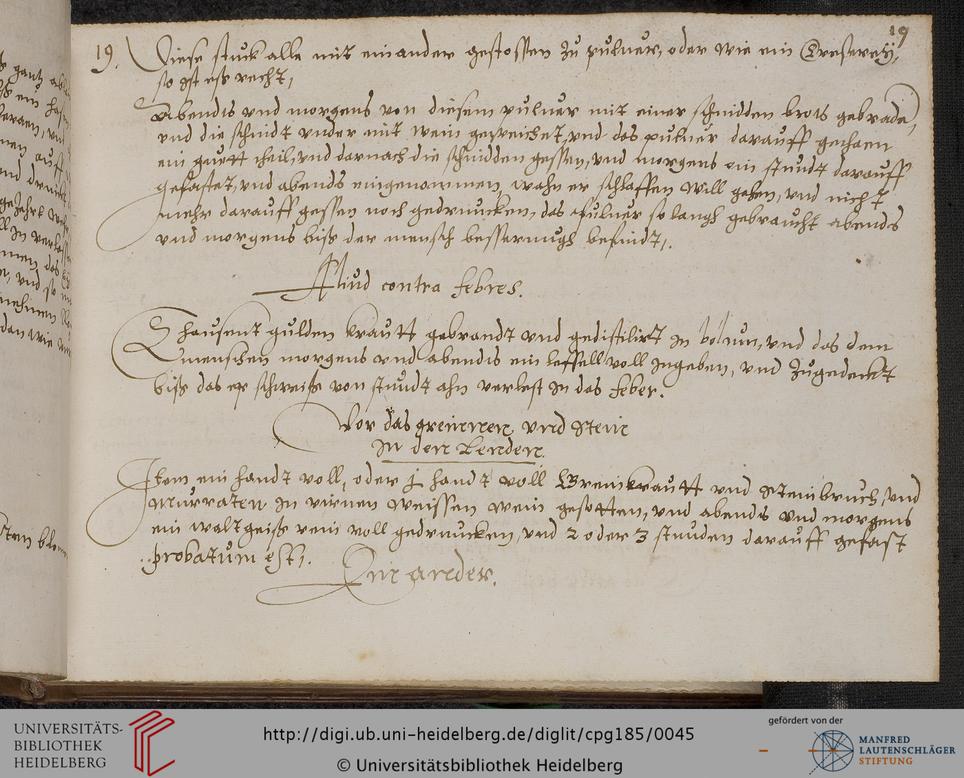 19.
19
Diese stuck alle mit einander gestossen zu puluer, oder wie ein Treseney,
so ist es recht,
Abendts vnd morgens von diesem puluer mit einer schnidden brots gebraden,
vnd die schnidt vnder mit wein geweichet, vnd das puluer darauff gethaen
ein guett theil, vnd darnach die schnidden gessen, vnd morgens ein stundt darauff
gefastet, vnd abends eingenommen, wahn er schlaffen will gehen, vnd nicht
mehr darauff gessen noch gedruncken, das puluer so langh gebraucht abends
vnd morgens biss der mensch besserungh befindt,.
Aliud contra febres.
Thausent gulden krautt gebrandt vnd gedistilirt in vnd das dem
menschen morgens vnd abendts ein leffell voll ingeben, vnd zugedeckt
biss das er schweisse von stundt ahn verlest in das feber.
Vor das grimmen vnd stein
in den Lenden.
Item ein handt voll, oder j handt voll krautt vnd steinbruch, vnd
in virnen weissen wein gesotten, vnd abends vnd morgens
ein voll gedruncken, vnd 2 oder 3 stunden darauff gefast
probatum est,.
Ein ander.
UNIVERSITÄTS-
BIBLIOTHEK
HEIDELBERG
http://digi.ub.uni-heidelberg.de/diglit/cpg185/0045
© Universitätsbibliothek Heidelberg
gefördert von der
MANFRED
LAUTENSCHLÄGER
STIFTUNG